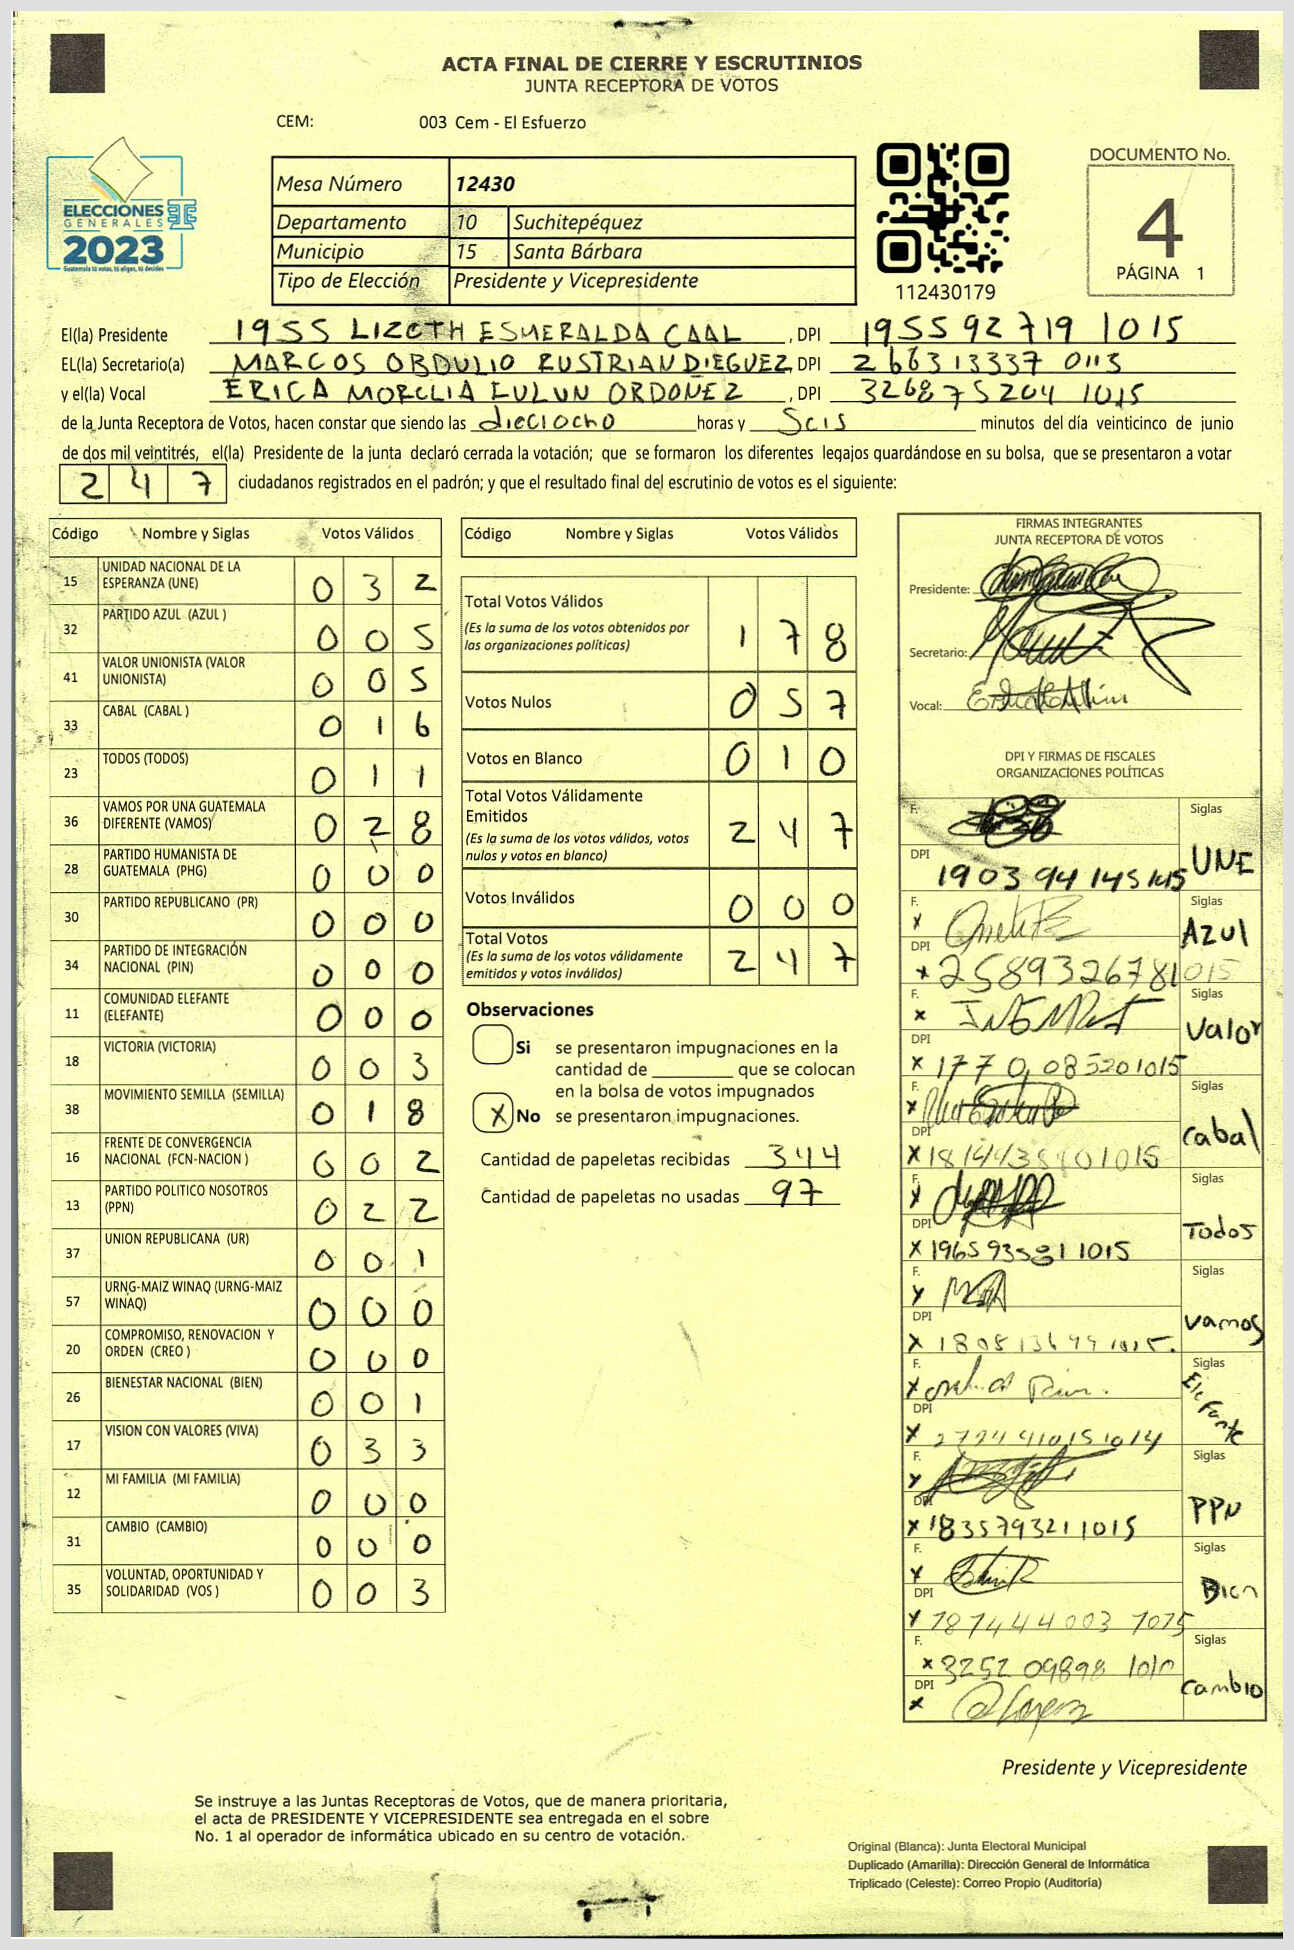 ACTA FINAL DE CIERRE Y ESCRUTINIOS
JUNTA RECEPTORA DE VOTOS
CEM: 003 Cem - El Esfuerzo
ELECCIONES
GENERALES
2023
Guatemala tú votas, tú eliges, tú decides
Mesa Número 12430
Departamento 10 Suchitepéquez
Municipio 15 Santa Bárbara
Tipo de Elección Presidente y Vicepresidente
112430179
DOCUMENTO No.
4
PÁGINA 1
El(la) Presidente 1955 LIZETH ESMERALDA CAAL, DPI 1955 92719 1015
EL(la) Secretario(a) MARCOS OBDULIO RUSTRIAN DIEGUEZ, DPI 2663 13337 0113
y el(la) Vocal ERICA MORELIA LULUN ORDOÑEZ, DPI 3268 75204 1015
de la Junta Receptora de Votos, hacen constar que siendo las dieciocho horas y Seis minutos del día veinticinco de junio
de dos mil veintitrés, el(la) Presidente de la junta declaró cerrada la votación; que se formaron los diferentes legajos guardándose en su bolsa, que se presentaron a votar
2 4 7 ciudadanos registrados en el padrón; y que el resultado final del escrutinio de votos es el siguiente:
Código Nombre y Siglas Votos Válidos
15 UNIDAD NACIONAL DE LA ESPERANZA (UNE) 0 3 2
32 PARTIDO AZUL (AZUL ) 0 0 5
41 VALOR UNIONISTA (VALOR UNIONISTA) 0 0 5
33 CABAL (CABAL ) 0 1 6
23 TODOS (TODOS) 0 1 1
36 VAMOS POR UNA GUATEMALA DIFERENTE (VAMOS) 0 2 8
28 PARTIDO HUMANISTA DE GUATEMALA (PHG) 0 0 0
30 PARTIDO REPUBLICANO (PR) 0 0 0
34 PARTIDO DE INTEGRACIÓN NACIONAL (PIN) 0 0 0
11 COMUNIDAD ELEFANTE (ELEFANTE) 0 0 0
18 VICTORIA (VICTORIA) 0 0 3
38 MOVIMIENTO SEMILLA (SEMILLA) 0 1 8
16 FRENTE DE CONVERGENCIA NACIONAL (FCN-NACION ) 0 0 2
13 PARTIDO POLITICO NOSOTROS (PPN) 0 2 2
37 UNION REPUBLICANA (UR) 0 0 1
57 URNG-MAIZ WINAQ (URNG-MAIZ WINAQ) 0 0 0
20 COMPROMISO, RENOVACION Y ORDEN (CREO ) 0 0 0
26 BIENESTAR NACIONAL (BIEN) 0 0 1
17 VISION CON VALORES (VIVA) 0 3 3
12 MI FAMILIA (MI FAMILIA) 0 0 0
31 CAMBIO (CAMBIO) 0 0 0
35 VOLUNTAD, OPORTUNIDAD Y SOLIDARIDAD (VOS ) 0 0 3
Código Nombre y Siglas Votos Válidos
Total Votos Válidos 1 7 8
(Es la suma de los votos obtenidos por
las organizaciones políticas)
Votos Nulos 0 5 7
Votos en Blanco 0 1 0
Total Votos Válidamente
Emitidos 2 4 7
(Es la suma de los votos válidos, votos
nulos y votos en blanco)
Votos Inválidos 0 0 0
Total Votos 2 4 7
(Es la suma de los votos válidamente
emitidos y votos inválidos)
Observaciones
Si se presentaron impugnaciones en la
cantidad de ________ que se colocan
en la bolsa de votos impugnados
X No se presentaron impugnaciones.
Cantidad de papeletas recibidas 344
Cantidad de papeletas no usadas 97
FIRMAS INTEGRANTES
JUNTA RECEPTORA DE VOTOS
Presidente:
Secretario:
Vocal:
DPI Y FIRMAS DE FISCALES
ORGANIZACIONES POLÍTICAS
F. Siglas
DPI 1903 94 145 1015 UNE
F. x Siglas
DPI x 2589326781015 Azul
F. x Siglas
DPI x 1770 085201015 Valor
F. x Siglas
DPI x Cabal
F. x Siglas
DPI x 1965 93581 1015 Todos
F. x Siglas
DPI x vamos
F. x Siglas
DPI x Elefante
F. x Siglas
DPI x 1835793211015 PPN
F. x Siglas
DPI x 187444003 1015 Bien
F. x 3252 09898 1010 Siglas
DPI x cambio
Presidente y Vicepresidente
Se instruye a las Juntas Receptoras de Votos, que de manera prioritaria,
el acta de PRESIDENTE Y VICEPRESIDENTE sea entregada en el sobre
No. 1 al operador de informática ubicado en su centro de votación.
Original (Blanca): Junta Electoral Municipal
Duplicado (Amarilla): Dirección General de Informática
Triplicado (Celeste): Correo Propio (Auditoría)